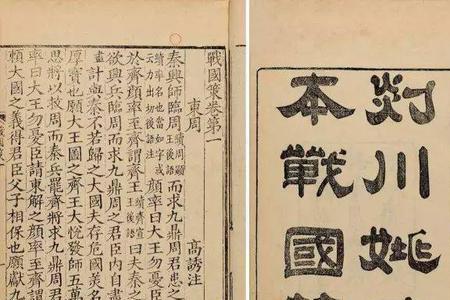 戰國策卷第一
東周
高誘注
秦興師臨周續周顯王後語而求九鼎周君患之
續率名也當如字或云力出切後語注顏率曰大王勿憂臣
於齊顏率至齊謂齊王續齊宣王後語曰夫秦
欲興兵臨周而求九鼎周之君臣內自畫
盡計與秦不若歸之大國夫存危國美名
厚寶也願大王圖之齊王大悅發師五萬
思將以救周而秦兵罷齊將求九鼎周
率曰大王勿憂臣請東解之顏率至齊
賴大國之義得君臣父子相保也願獻九
剡川姚
本戰國